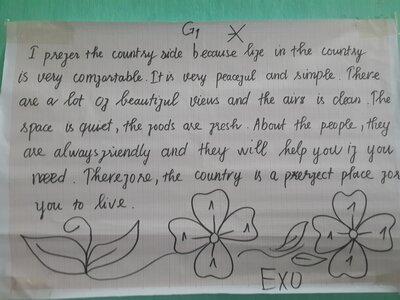 G1
I prefer the country side because life in the country
is very comfortable. It is very peaceful and simple. There
are a lot of beautiful views and the airs is clean. The
space is quiet, the foods are fresh. About the people, they
are always friendly and they will help you if you
need. Therefore, the country is a prerfect place for
you to live.
1 1 1 1 1 1 1 1
EXO